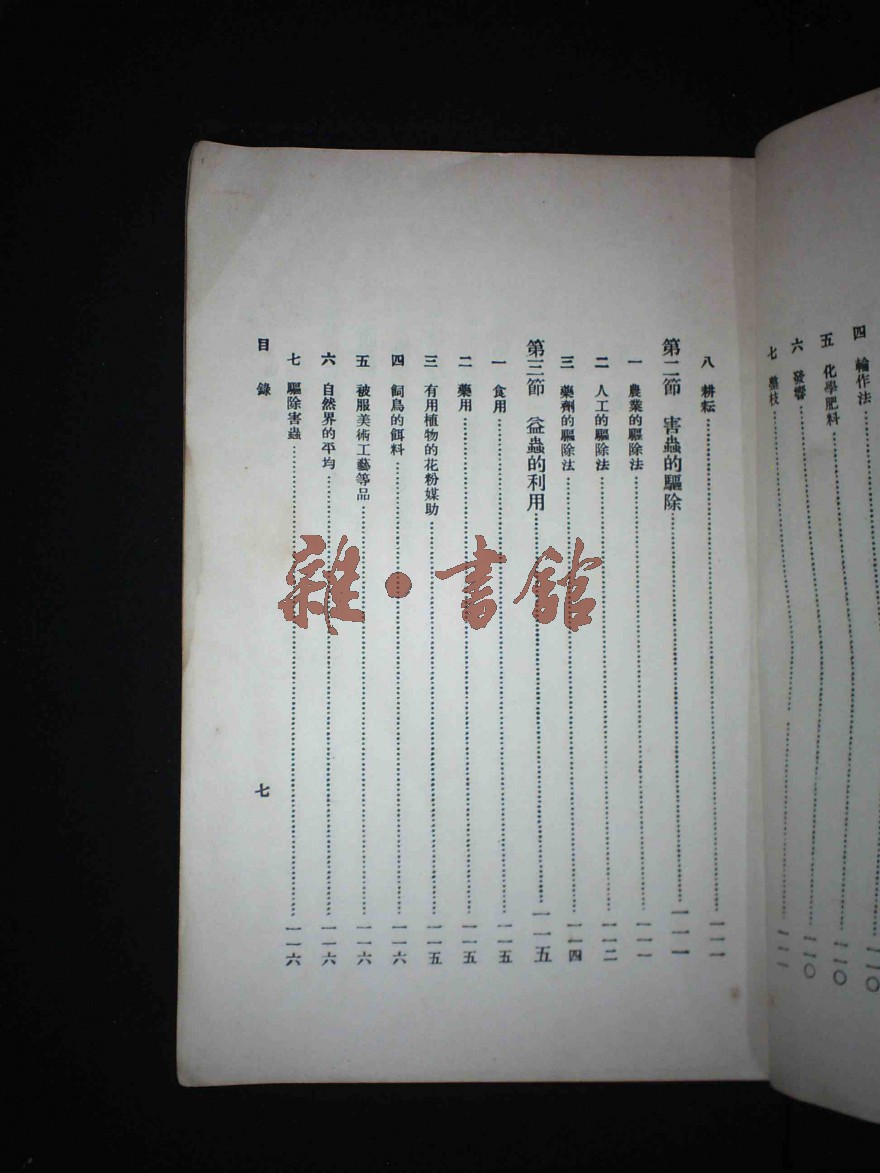 四 輪作法……一一〇
五 化學肥料……一一〇
六 發響……一一〇
七 整枝……一一一
八 耕耘……一一一
第二節 害蟲的驅除……一一一
一 農業的驅除法……一一一
二 人工的驅除法……一一二
三 藥劑的驅除法……一一四
第三節 益蟲的利用……一一五
一 食用……一一五
二 藥用……一一五
三 有用植物的花粉媒助……一一五
四 飼鳥的餌料……一一六
五 被服美術工藝等品……一一六
六 自然界的平均……一一六
七 驅除害蟲……一一六
目錄
七
雜·書館